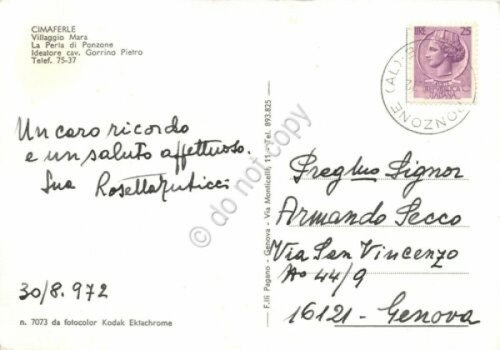 CIMAFERLE
Villaggio Mara
La Perla di Ponzone
Ideatore cav. Gorrino Pietro
Telef. 75-37
LIRE 25
REPUBBLICA
ITALIANA
PONZONE (AL)
Un caro ricordo
e un saluto affettuoso.
Sua Rosetta
30/8.972
n. 7073 da fotocolor Kodak Ektachrome
F.lli Pagano - Genova - Via Monticelli, 11 r - Tel. 893.825
Preg/mo Signor
Armando Secco
Via San Vincenzo
No 44/9
16121 - Genova
do not copy